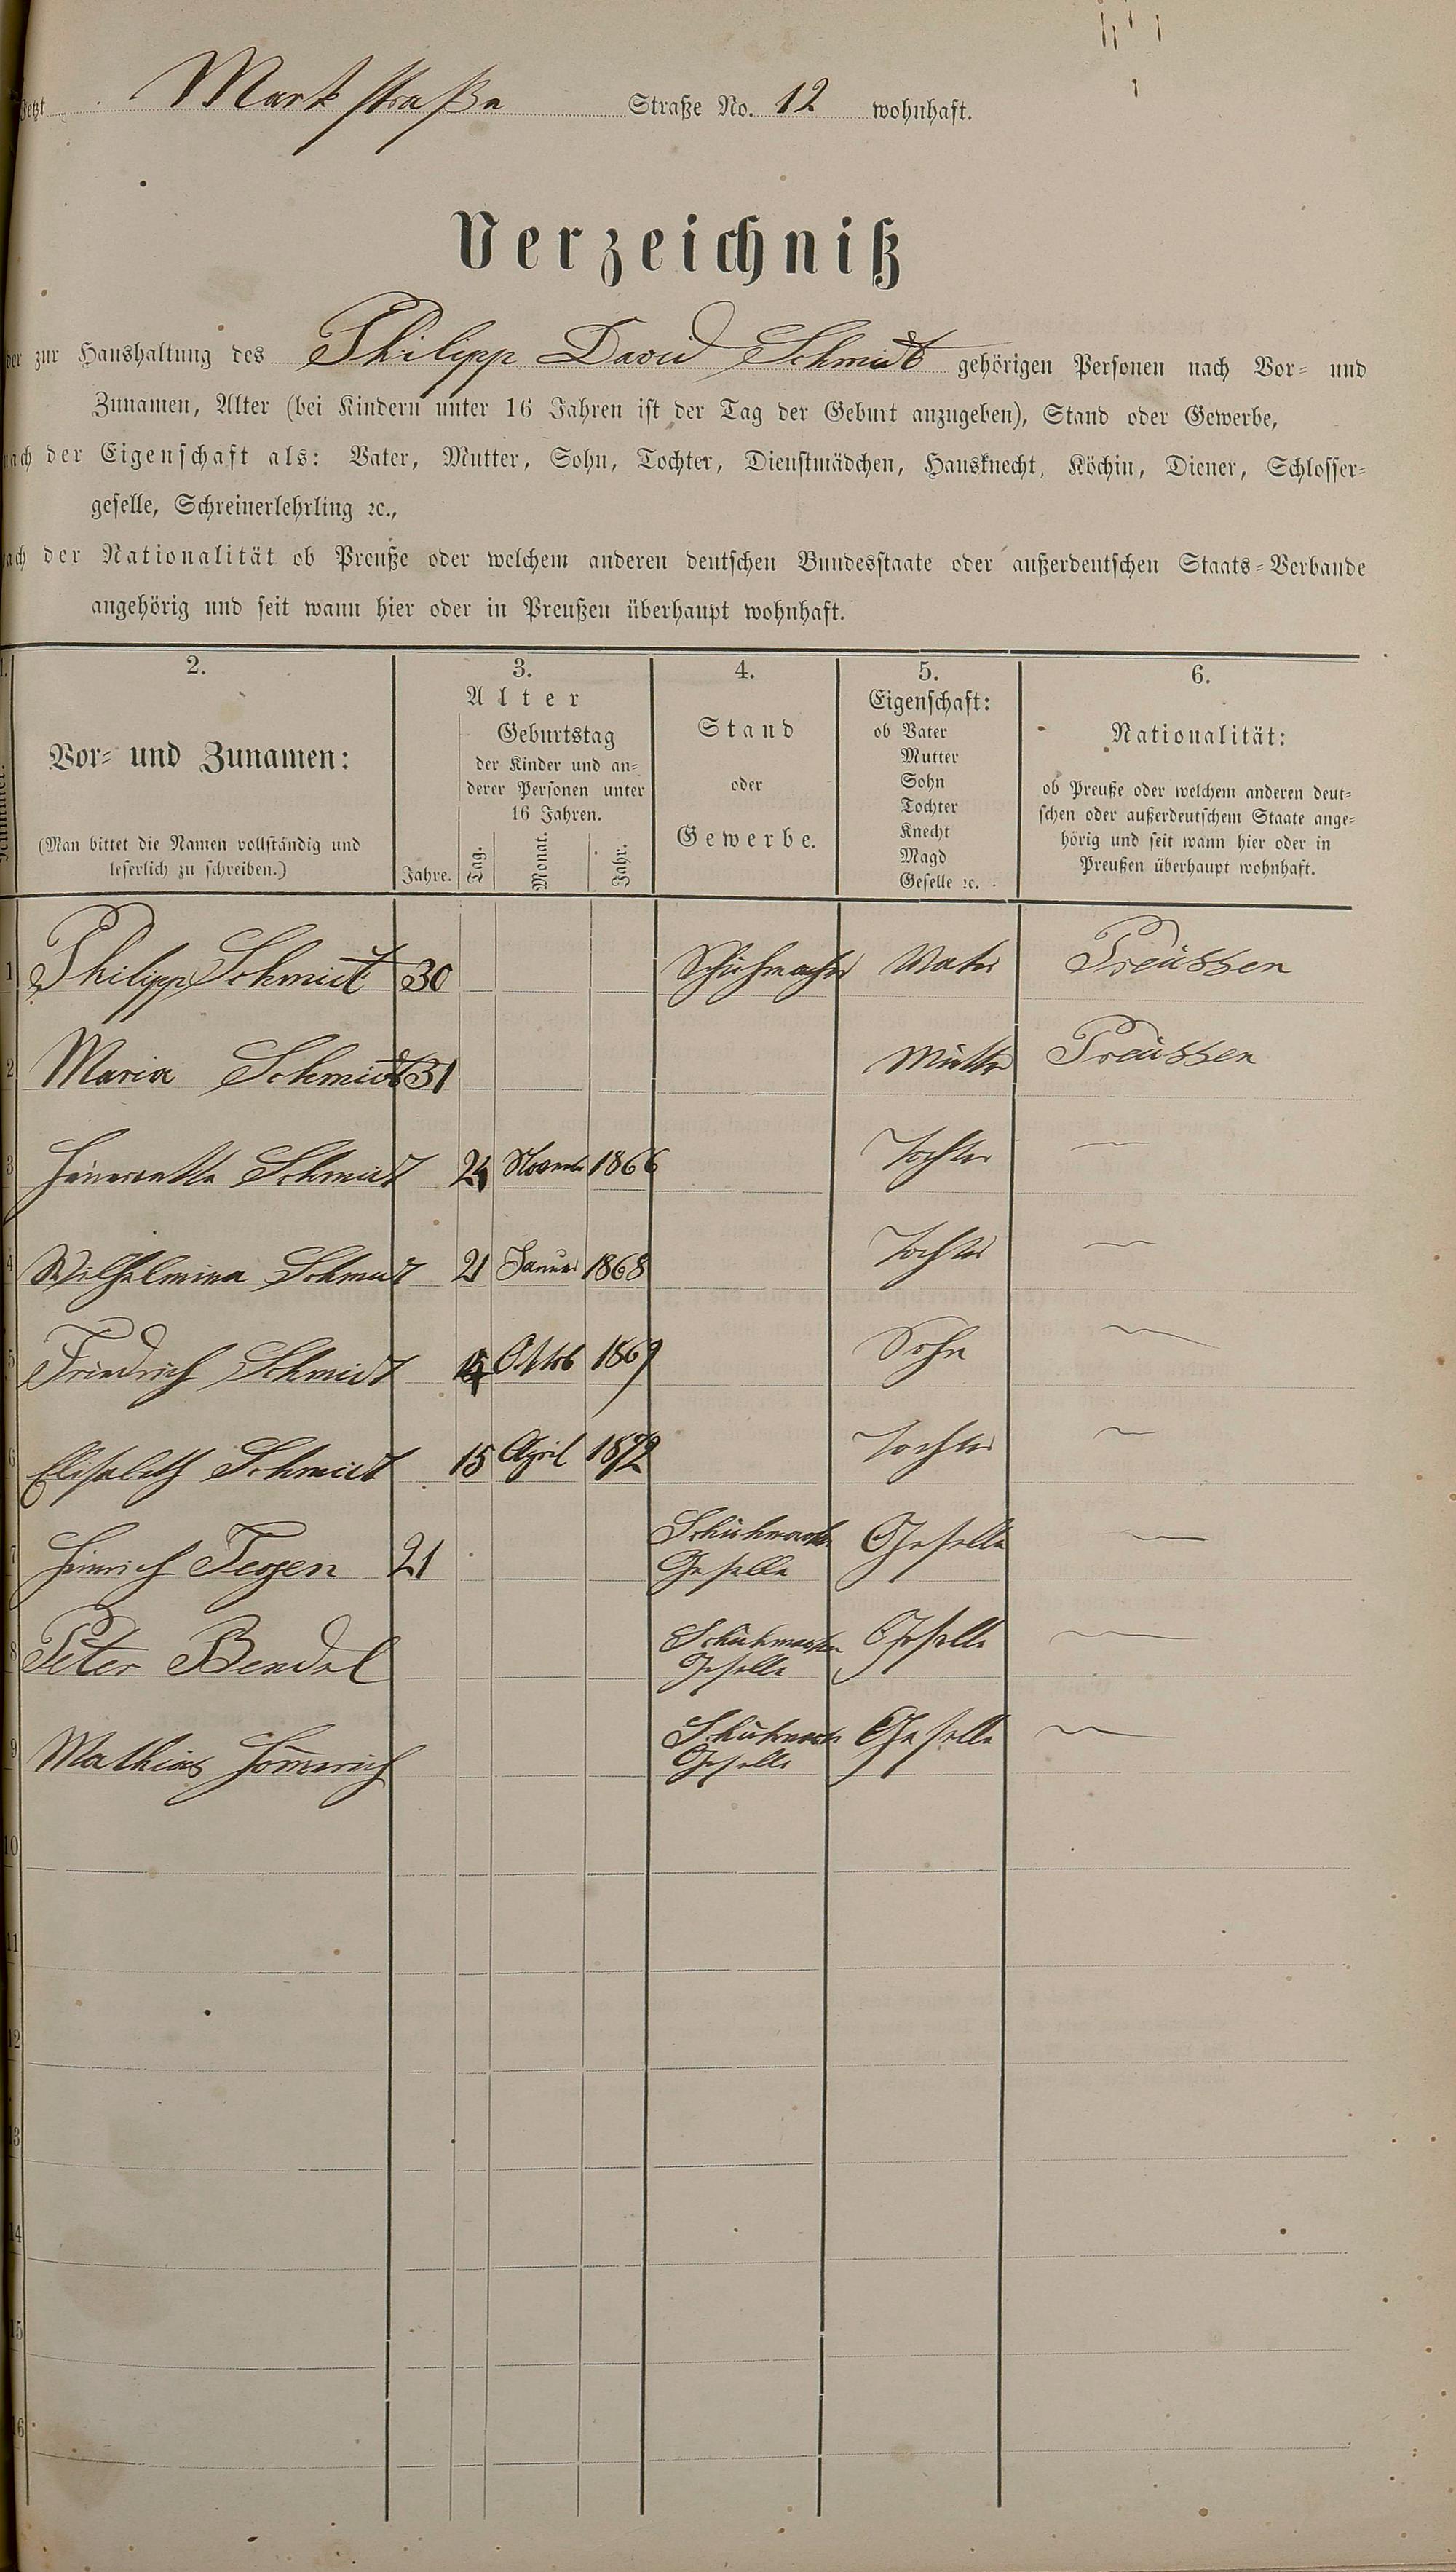 Jetzt Markstraße Straße No. 12 wohnhaft.
Verzeichniß
der zur Haushaltung des Philipp David Schmidt gehörigen Personen nach Vor- und
Zunamen, Alter (bei Kindern unter 16 Jahren ist der Tag der Geburt anzugeben), Stand oder Gewerbe,
nach der Eigenschaft als: Vater, Mutter, Sohn, Tochter, Dienstmädchen, Hausknecht, Köchin, Diener, Schlosser-
geselle, Schreinerlehrling ꝛc.,
nach der Nationalität ob Preuße oder welchem anderen deutschen Bundesstaate oder außerdeutschen Staats-Verbande
angehörig und seit wann hier oder in Preußen überhaupt wohnhaft.
1. 2. 3. 4. 5. 6.
Nummer.
Vor- und Zunamen:
(Man bittet die Namen vollständig und
leserlich zu schreiben.)
Alter
Jahre.
Geburtstag
der Kinder und an-
derer Personen unter
16 Jahren.
Tag. Monat. Jahr.
Stand
oder
Gewerbe.
Eigenschaft:
ob Vater
Mutter
Sohn
Tochter
Knecht
Magd
Geselle ꝛc.
Nationalität:
ob Preuße oder welchem anderen deut-
schen oder außerdeutschem Staate ange-
hörig und seit wann hier oder in
Preußen überhaupt wohnhaft.
1 Philipp Schmidt 30 Schuhmacher Vater Preussen
2 Maria Schmidt 31 Mutter Preussen
3 Schmidt 24 Novemb 1866 Tochter —
4 Wilhelmina Schmidt 21 Januar 1868 Tochter —
5 Friedrich Schmidt Oktob 1869 Sohn —
6 Elisabeth Schmidt 15 April 1872 Tochter —
7 Heinrich Tegen 21 Schuhmacher Geselle —
Geselle
8 Peter Bendel Schuhmacher Geselle —
Geselle
9 Mathias Hom̅erich Schuhmacher Geselle —
Geselle
10
11
12
13
14
15
16